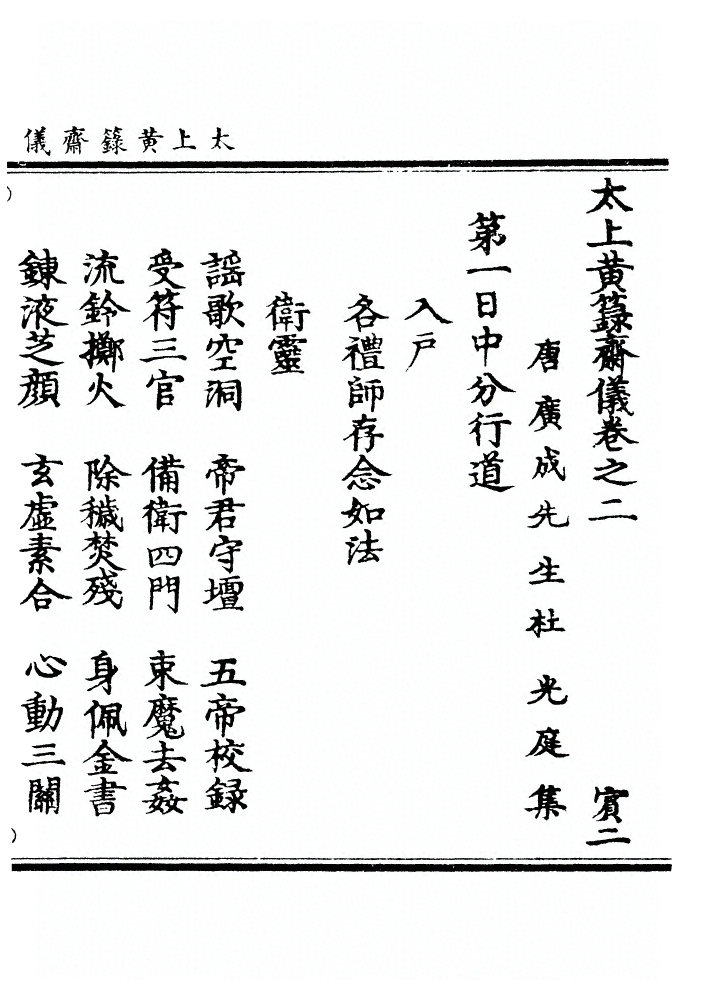 太上黃籙齋儀
太上黃籙齋儀卷之二 賓二
唐廣成先生杜光庭集
第一日中分行道
入戶
各禮師存念如法
衛靈
謡歌空洞 帝君守壇 五帝校録
受符三官 備衛四門 束魔去姦
流鈴擲火 除穢焚殘 身佩金書
鍊液芝顏 玄虛素合 心動三關